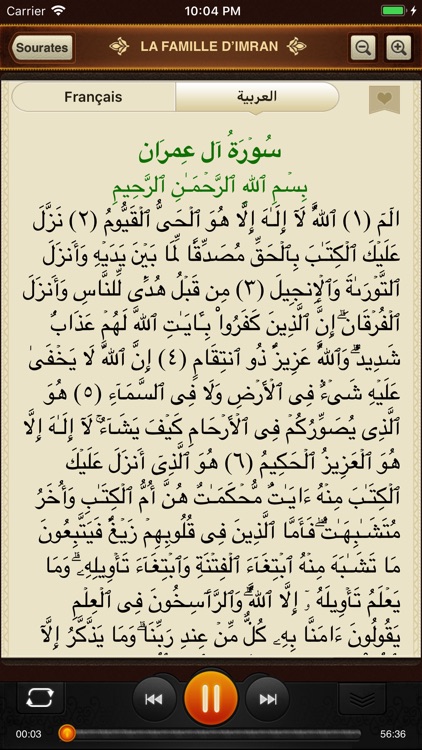 Carrier 10:04 PM
Sourates LA FAMILLE D'IMRAN
Français العربية
سُورَةُ آل عِمرَان
بِسۡمِ ٱللهِ ٱلرَّحۡمَـٰنِ ٱلرَّحِيمِ
الٓمٓ (١) ٱللَّهُ لَآ إِلَـٰهَ إِلَّا هُوَ ٱلۡحَىُّ ٱلۡقَيُّومُ (٢) نَزَّلَ
عَلَيۡكَ ٱلۡكِتَـٰبَ بِٱلۡحَقِّ مُصَدِّقً۬ا لِّمَا بَيۡنَ يَدَيۡهِ وَأَنزَلَ
ٱلتَّوۡرَٮٰةَ وَٱلۡإِنجِيلَ (٣) مِن قَبۡلُ هُدً۬ى لِّلنَّاسِ وَأَنزَلَ
ٱلۡفُرۡقَانَ‌ۗ إِنَّ ٱلَّذِينَ كَفَرُواْ بِـَٔايَـٰتِ ٱللَّهِ لَهُمۡ عَذَابٌ۬
شَدِيدٌ۬‌ۗ وَٱللَّهُ عَزِيزٌ۬ ذُو ٱنتِقَامٍ (٤) إِنَّ ٱللَّهَ لَا يَخۡفَىٰ
عَلَيۡهِ شَىۡءٌ۬ فِى ٱلۡأَرۡضِ وَلَا فِى ٱلسَّمَآءِ (٥) هُوَ
ٱلَّذِى يُصَوِّرُكُمۡ فِى ٱلۡأَرۡحَامِ كَيۡفَ يَشَآءُ‌ۚ لَآ إِلَـٰهَ إِلَّا
هُوَ ٱلۡعَزِيزُ ٱلۡحَكِيمُ (٦) هُوَ ٱلَّذِىٓ أَنزَلَ عَلَيۡكَ
ٱلۡكِتَـٰبَ مِنۡهُ ءَايَـٰتٌ۬ مُّحۡكَمَـٰتٌ هُنَّ أُمُّ ٱلۡكِتَـٰبِ وَأُخَرُ
مُتَشَـٰبِهَـٰتٌ۬‌ۖ فَأَمَّا ٱلَّذِينَ فِى قُلُوبِهِمۡ زَيۡغٌ۬ فَيَتَّبِعُونَ
مَا تَشَـٰبَهَ مِنۡهُ ٱبۡتِغَآءَ ٱلۡفِتۡنَةِ وَٱبۡتِغَآءَ تَأۡوِيلِهِۦ‌ۗ وَمَا
يَعۡلَمُ تَأۡوِيلَهُ ۥۤ إِلَّا ٱللَّهُ‌ۗ وَٱلرَّٲسِخُونَ فِى ٱلۡعِلۡمِ
يَقُولُونَ ءَامَنَّا بِهِۦ كُلٌّ۬ مِّنۡ عِندِ رَبِّنَا‌ۗ وَمَا يَذَّكَّرُ إِلَّآ
00:03 56:36